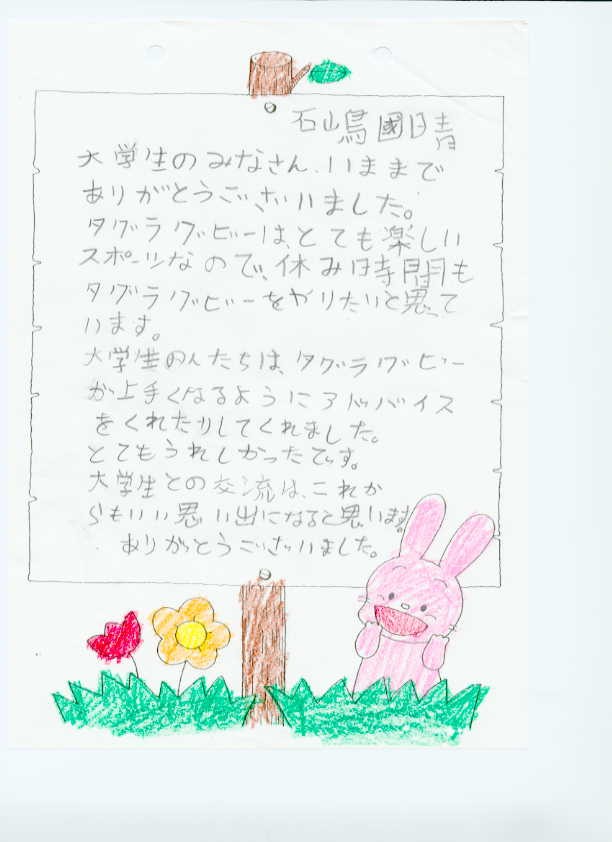 石山鳥國晴
大学生のみなさん、いままで
ありがとうございました。
タグラグビーは、とても楽しい
スポーツなので、休み時間も
タグラグビーをやりたいと思って
います。
大学生の人たちは、タグラグビー
が上手くなるようにアドバイス
をくれたりしてくれました。
とてもうれしかったです。
大学生との交流は、これか
らもいい思い出になると思います。
ありがとうございました。